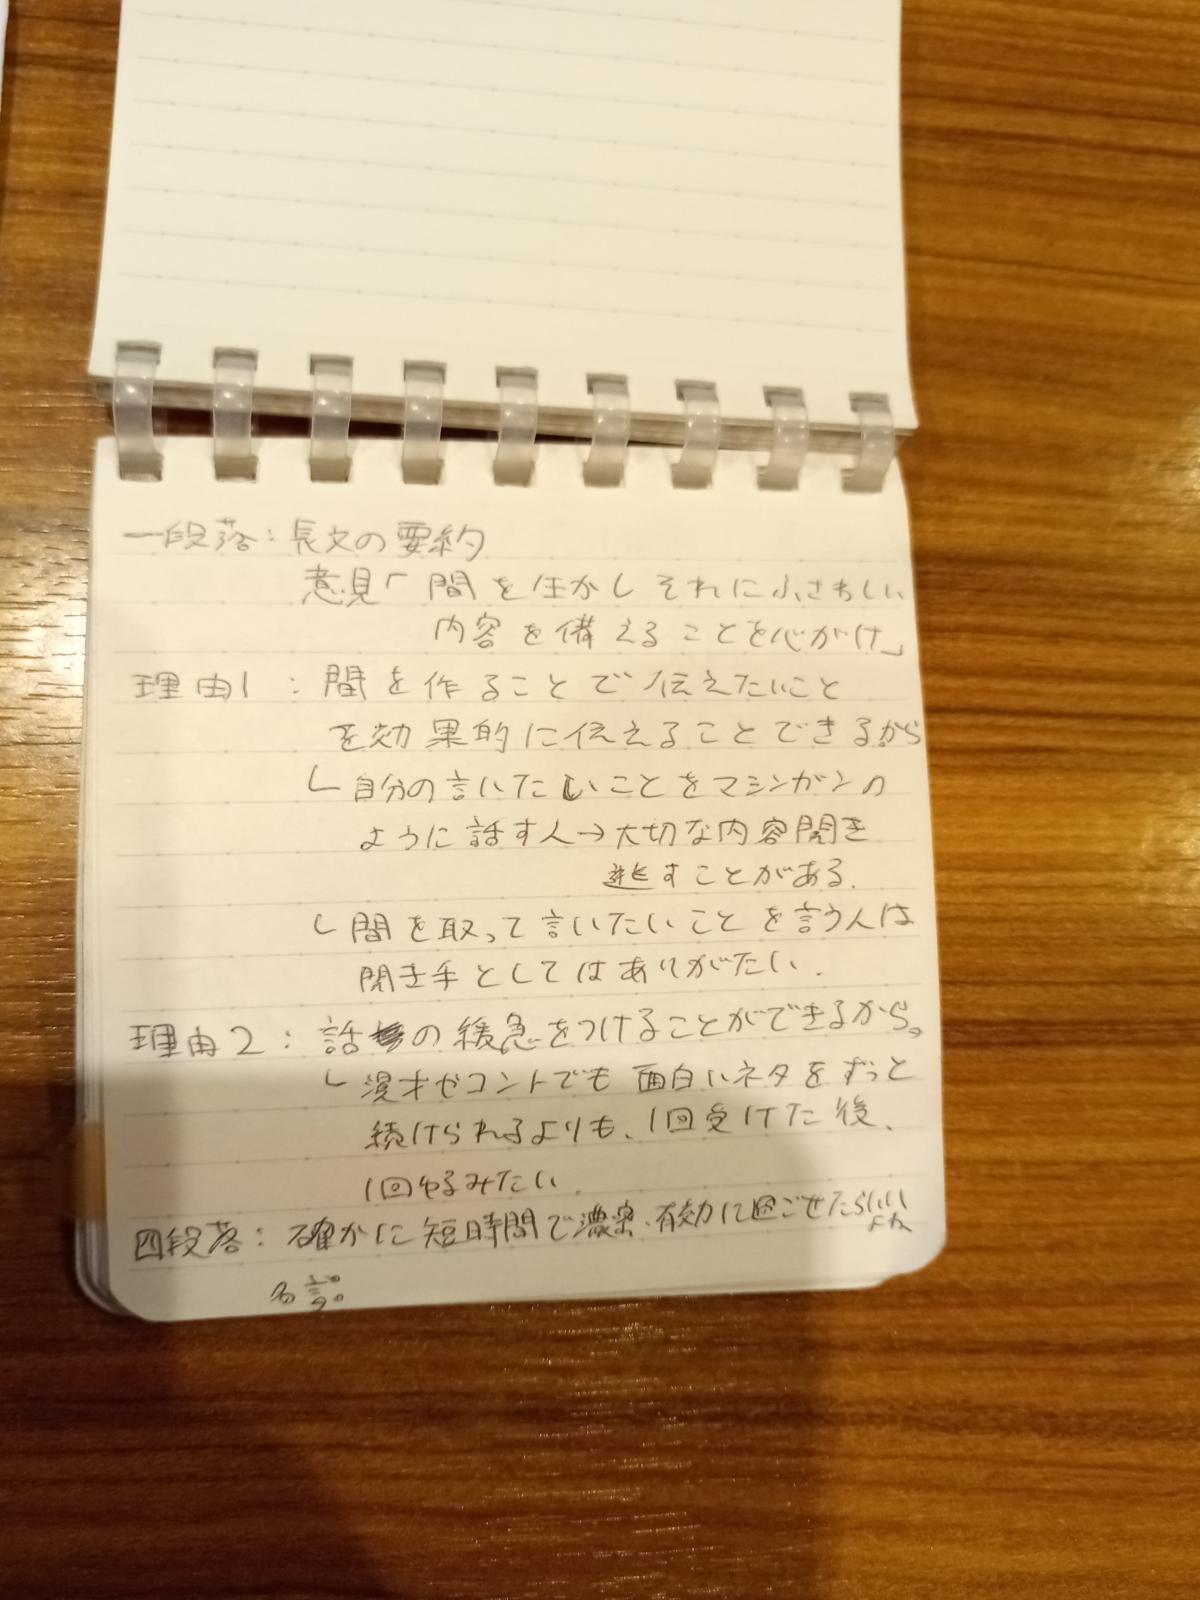 一段落：長文の要約
意見「間を生かしそれにふさわしい
内容を備えることを心がけ」
理由1：間を作ることで伝えたいこと
を効果的に伝えることできるから
└自分の言いたいことをマシンガンの
ように話す人→大切な内容聞き
逃すことがある.
└間を取って言いたいことを言う人は
聞き手としてはありがたい.
理由2：話の緩急をつけることができるから。
└漫才やコントでも面白いネタをずっと
続けられるよりも、1回受けた後、
1回ゆるみたい.
四段落：確かに短時間で濃密・有効に過ごせたらいい
よね
名言。